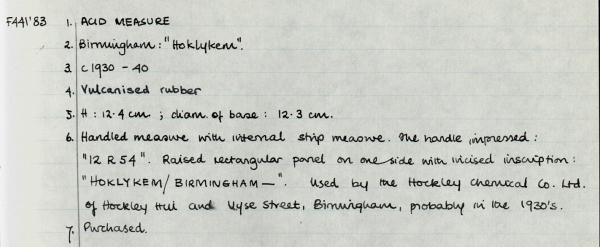 F441'83 1. ACID MEASURE
2. Birmingham: "Hoklykem".
3. c1930 - 40
4. Vulcanised rubber
5. H: 12.4 cm ; diam. of base : 12.3 cm.
6. Handled measure with internal strip measure. The handle impressed :
"12 R 54". Raised rectangular panel on one side with incised inscription :
"HOKLYKEM/ BIRMINGHAM—". Used by the Hockley Chemical Co. Ltd.
of Hockley Hill and Vyse Street, Birmingham, probably in the 1930's.
7. Purchased.